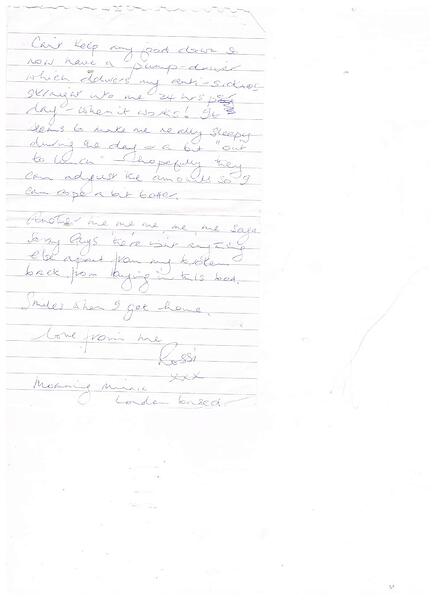 Can't keep my food down &
now have a pump-driver
which delivers my anti-sickness
straight into me 24 hrs per
day - when it works! It
seems to make me really sleepy
during the day & a bit "out
to lunch" - hopefully they
can adjust the amounts so I
can cope a bit better.
Another me, me, me, me, me saga
Sorry Guys, there isn't anything
else apart from my broken
back from laying in this bed.
Smiles when I get home.
Love from me
Rossi
xxx
Morning
London based